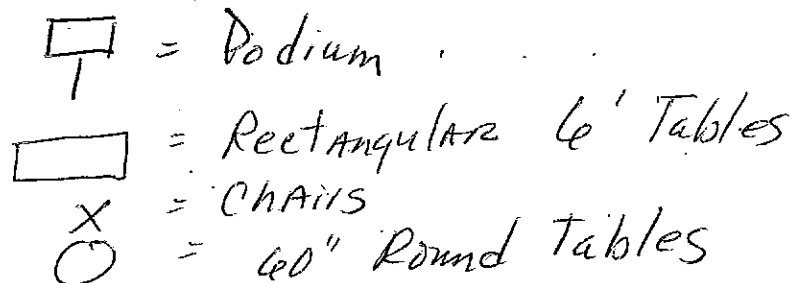 = Podium
= Rectangular 6' Tables
X = Chairs
= 60" Round Tables